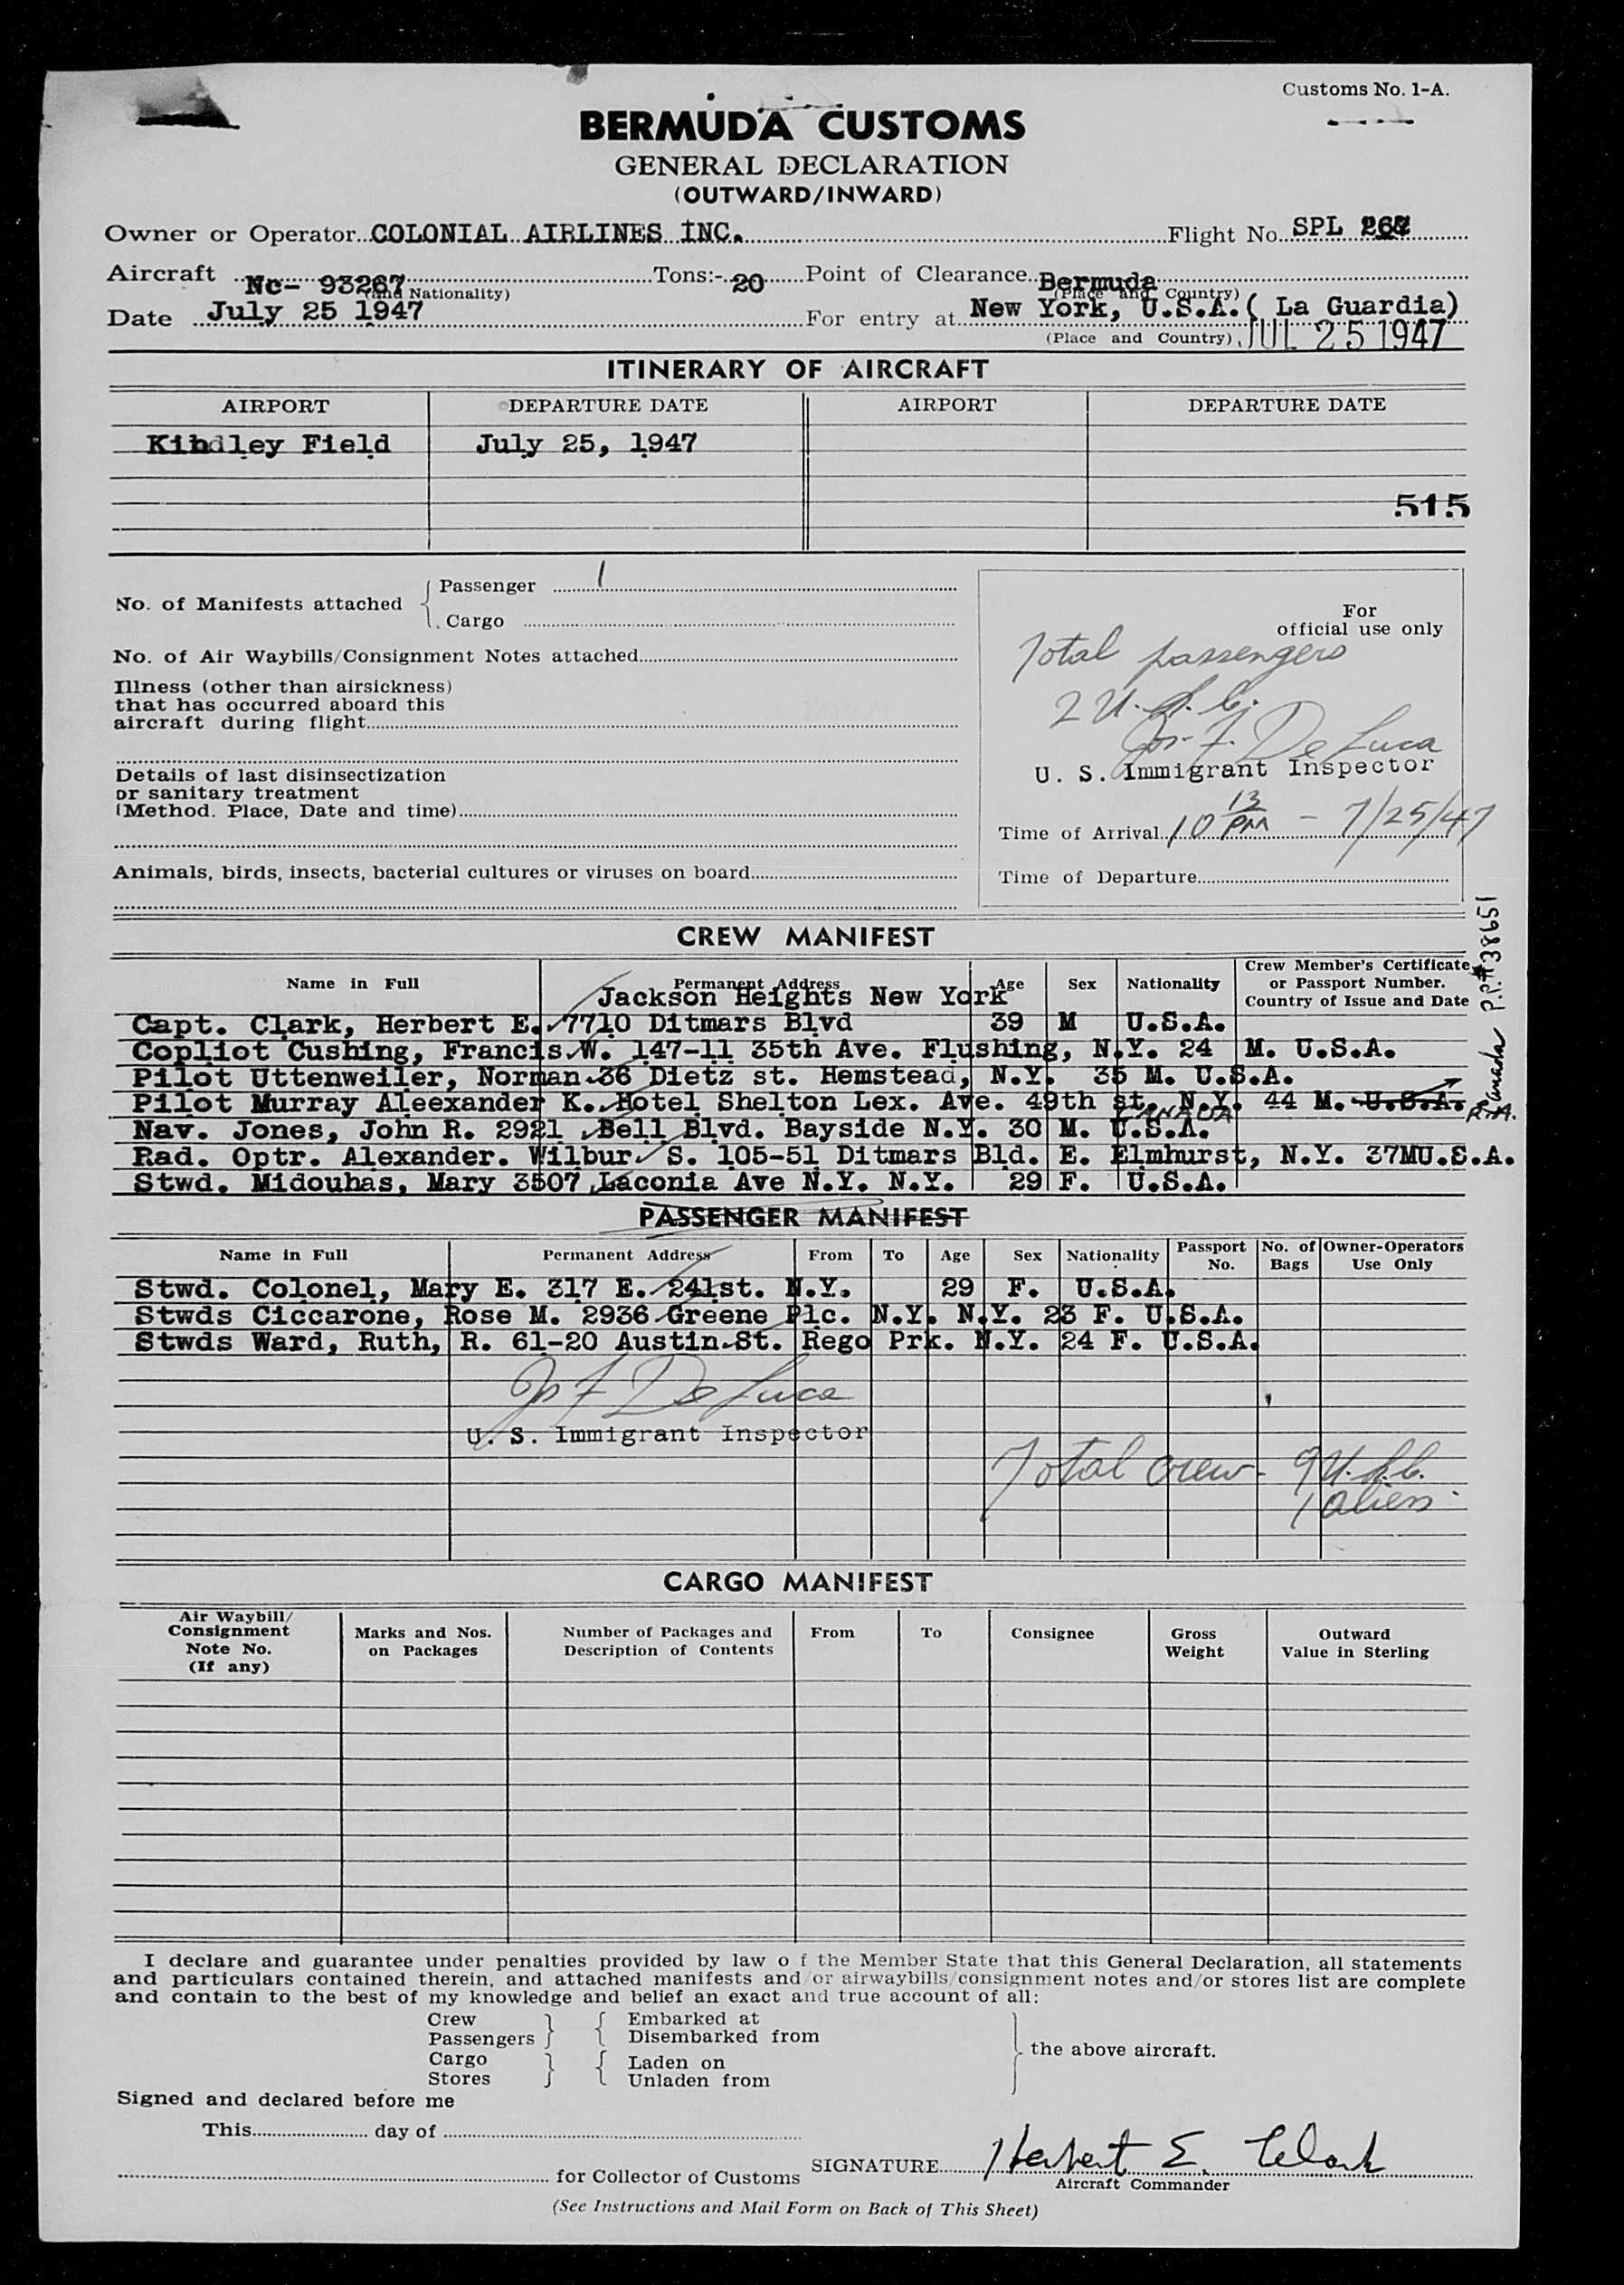 Customs No. 1-A.
BERMUDA CUSTOMS
GENERAL DECLARATION
(OUTWARD/INWARD)
Owner or Operator COLONIAL AIRLINES INC. Flight No. SPL
Aircraft Nc- 93267 Tons:- 20 Point of Clearance Bermuda
(and Nationality) (Place and Country)
Date July 25 1947 For entry at New York, U.S.A. ( La Guardia)
(Place and Country) JUL 25 1947
ITINERARY OF AIRCRAFT
AIRPORT DEPARTURE DATE AIRPORT DEPARTURE DATE
Kindley Field July 25, 1947
515
No. of Manifests attached
Passenger 1
Cargo
No. of Air Waybills/Consignment Notes attached
Illness (other than airsickness)
that has occurred aboard this
aircraft during flight
Details of last disinsectization
or sanitary treatment
(Method. Place, Date and time)
Animals, birds, insects, bacterial cultures or viruses on board
For
official use only
Total passengers
2 U.S.C.
Jos. F. De Luca
U. S. Immigrant Inspector
Time of Arrival 10 13 PM - 7/25/47
Time of Departure
CREW MANIFEST
Name in Full Permanent Address Age Sex Nationality Crew Member's Certificate or Passport Number. Country of Issue and Date
Jackson Heights New York
Capt. Clark, Herbert E. 7710 Ditmars Blvd 39 M U.S.A.
Copliot Cushing, Francis W. 147-11 35th Ave. Flushing, N.Y. 24 M. U.S.A.
Pilot Uttenweiler, Norman 36 Dietz st. Hemstead, N.Y. 35 M. U.S.A.
Pilot Murray Aleexander K. Hotel Shelton Lex. Ave. 49th st. N.Y. 44 M. U.S.A. R.A.
CANADA
Canada P.P.# 38651
Nav. Jones, John R. 2921 Bell Blvd. Bayside N.Y. 30 M. U.S.A.
Rad. Optr. Alexander. Wilbur S. 105-51 Ditmars Bld. E. Elmhurst, N.Y. 37MU.S.A.
Stwd. Midouhas, Mary 3507 Laconia Ave N.Y. N.Y. 29 F. U.S.A.
PASSENGER MANIFEST
Name in Full Permanent Address From To Age Sex Nationality Passport No. No. of Bags Owner-Operators Use Only
Stwd. Colonel, Mary E. 317 E. 241st. N.Y. 29 F. U.S.A.
Stwds Ciccarone, Rose M. 2936 Greene Plc. N.Y. N.Y. 23 F. U.S.A.
Stwds Ward, Ruth, R. 61-20 Austin St. Rego Prk. N.Y. 24 F. U.S.A.
Jos F De Luca
U. S. Immigrant Inspector
Total crew - 9 U.S.C.
1 alien
CARGO MANIFEST
Air Waybill/ Consignment Note No. (If any) Marks and Nos. on Packages Number of Packages and Description of Contents From To Consignee Gross Weight Outward Value in Sterling
I declare and guarantee under penalties provided by law o f the Member State that this General Declaration, all statements
and particulars contained therein, and attached manifests and/or airwaybills/consignment notes and/or stores list are complete
and contain to the best of my knowledge and belief an exact and true account of all:
Crew
Passengers
Embarked at
Disembarked from
Cargo
Stores
Laden on
Unladen from
the above aircraft.
Signed and declared before me
This day of
for Collector of Customs
SIGNATURE Herbert E. Clark
Aircraft Commander
(See Instructions and Mail Form on Back of This Sheet)